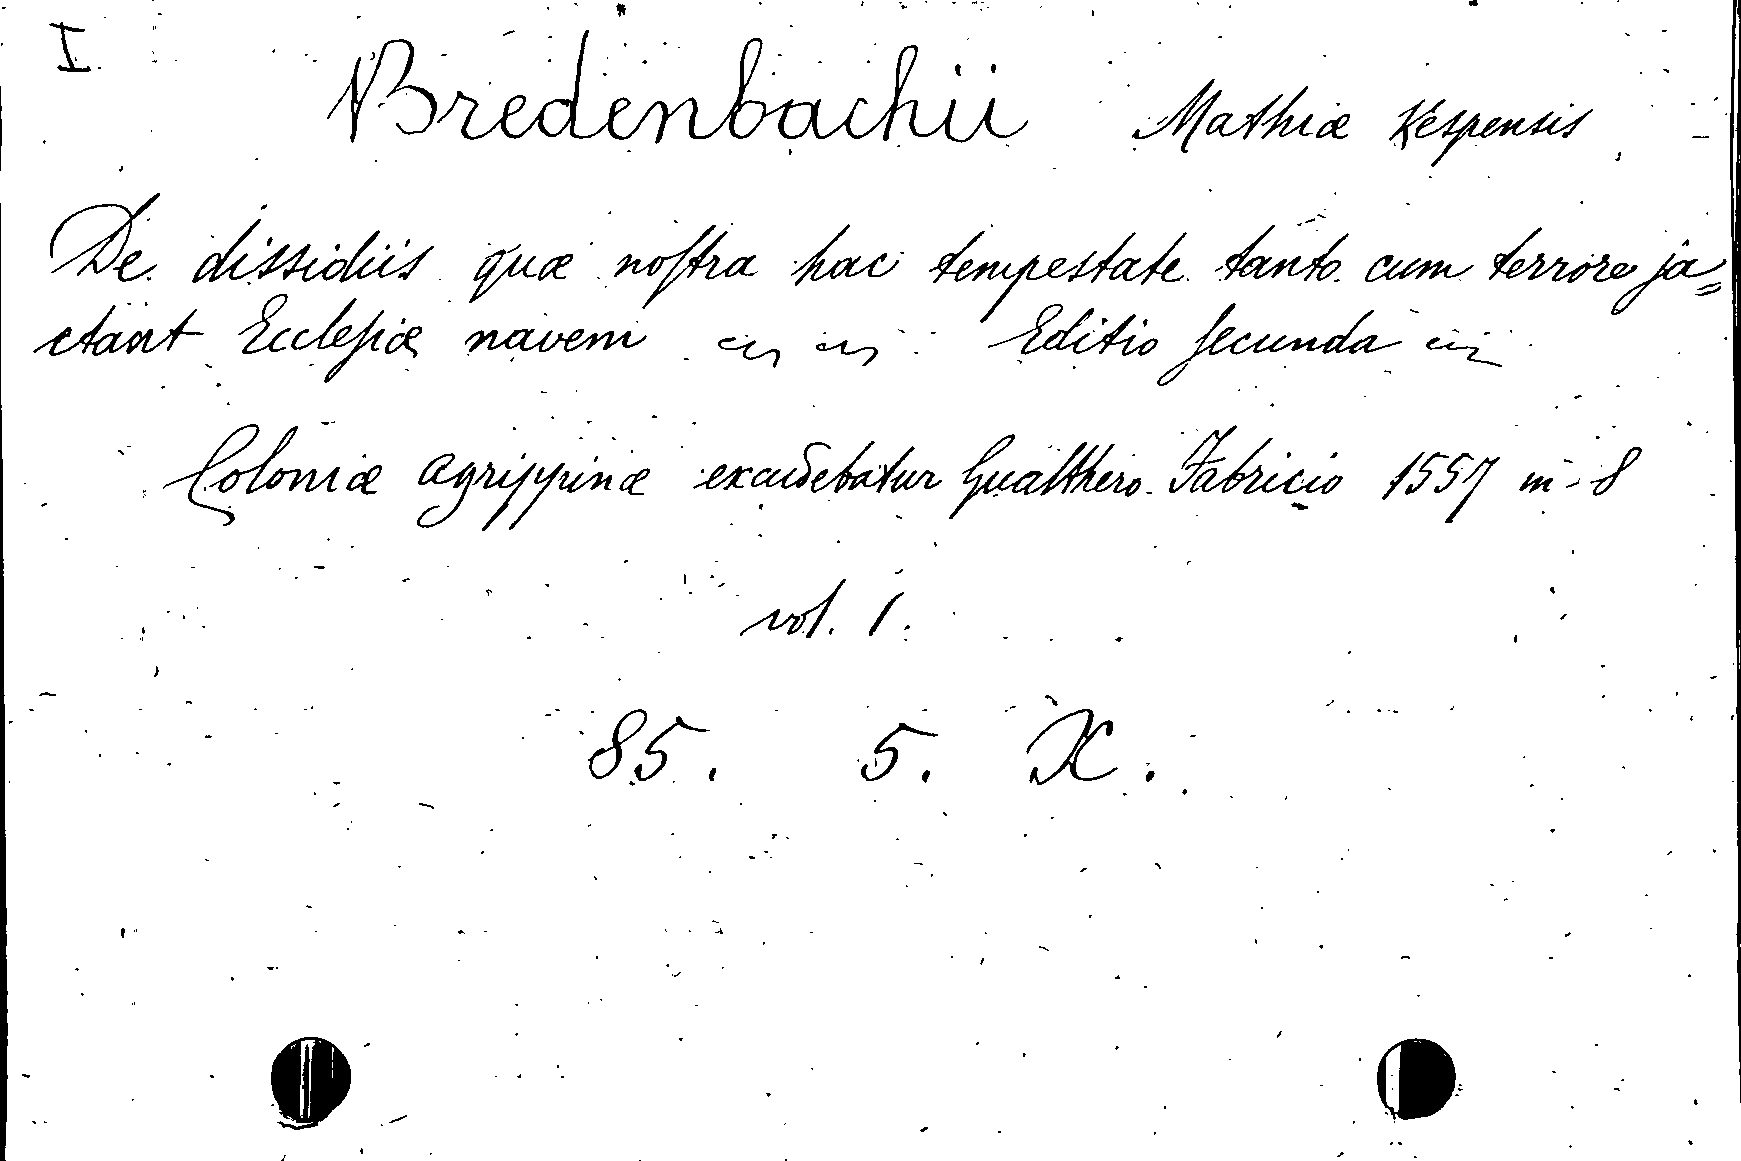 I
Bredenbachii Mathiæ Kespensis
De dissidiis quæ noſtra hac tempestate tanto cum terrore ja=
ctant Eccleſiæ navem Editio ſecunda
Coloniæ agrippinæ excudebatur Gualthero Fabricio 1557 in-8
vol. 1.
85. 5. X.